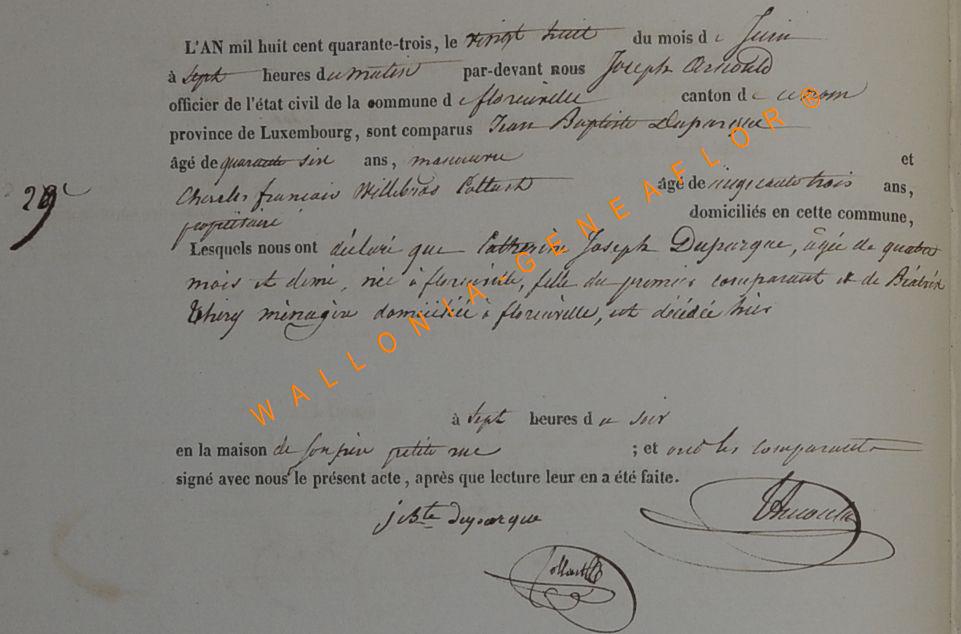 L'AN mil huit cent quarante-trois, le vingt huit du mois de Juin
à sept heures du matin par-devant nous Joseph Arnould
officier de l'état civil de la commune de florenville canton d
province de Luxembourg, sont comparus Jean Baptiste Duparque
âgé de quarante six ans, manœuvre et
Charles françois Willebros Collart âgé de cinquante trois ans,
propriétaire domiciliés en cette commune,
29e
Lesquels nous ont déclaré que Catherine Joseph Duparque, âgée de quatre
mois et demi, née à florenville, fille du premier comparant et de Béatrix
Thiry ménagère domiciliée à florenville, est décédée hier
à sept heures du soir
en la maison de son père petite rue ; et ont les comparants
signé avec nous le présent acte, après que lecture leur en a été faite.
j Bte duparque
Arnould
Collart
WALLONIA-GENEAFLOR ®